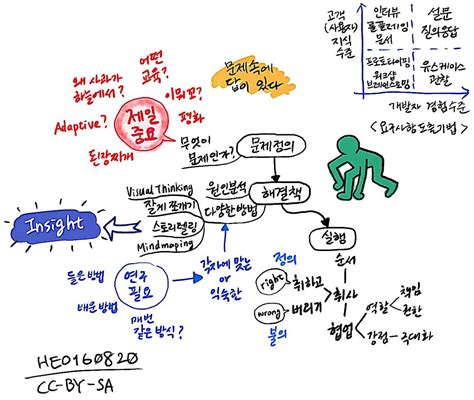 어떤
교육?
왜 사과가
하늘에서?
이뭐꼬?
Adaptive?
제일
중요
평화
된장찌개
무엇이
문제인가?
문제속에
답이 있다
문제정의
고객
(사용자)
지식
수준
인터뷰
롤플레잉
문서
설문
질의응답
프로토타이핑
워크샵
브레인스토밍
유스케이스
관찰
개발자 경험수준
<요구사항 도출기법>
Visual Thinking
잘게 쪼개기
스토리텔링
Mindmaping
원인분석
다양한 방법
해결책
Insight
실행
순서
들은 방법
배운 방법
연구
필요
매번
같은 방식?
각자에 맞는
or
익숙한
정의
right
취하고
wrong
버리기
불의
취사
협업
역할
책임
권한
강점
극대화
HE0160820
CC-BY-SA